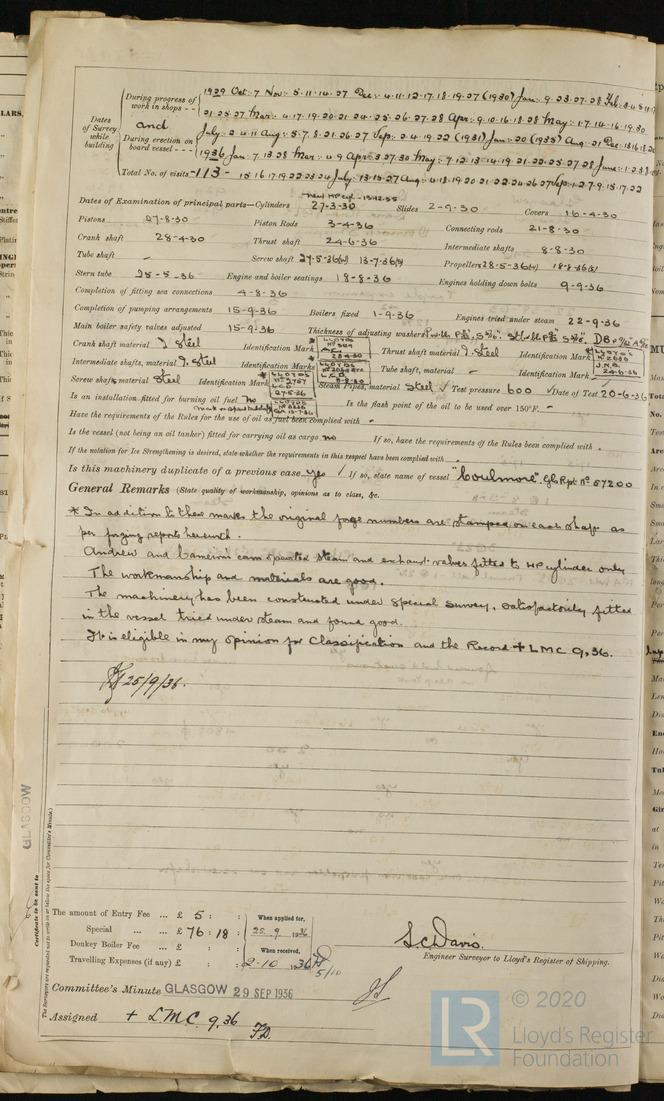 During progress of work in shops - - 1929 Oct: 7 Nov: 5·11·14·27 Dec: 4·11·12·17·18·19·27 (1930) Jan: 9·23·27·28 Feb:
21·25·27 Mar: 4·17·19·20·21·24·25·26·27·28 Apr: 9·10·16·18·28 May: 1·7·14·16·19·30
Dates of Survey while building
and
During erection on board vessel - - -
July: 2·4·11 Aug: 5·7·8·21·26·27 Sep: 2·4·19·22 (1931) Jan: 20 (1935) Aug: 21 Dec:
1936 Jan: 7·13·28 Mar: 4·9 Apr: 3·27·30 May: 7·12·13·14·19·21·22·25·27·28 June:
Total No. of visits -113- 15·16·17·19·22·23·24 July: 13·15·27 Aug: 4·18·19·20·21·22·24·26·27 Sep: 1·2·7·9·15·17·22
New HP cyl - 13·12·35
Dates of Examination of principal parts—Cylinders 27-3-30 Slides 2-9-30 Covers 16-4-30
Pistons 27-8-30 Piston Rods 3-4-36 Connecting rods 21-8-30
Crank shaft 28-4-30 Thrust shaft 24-6-36 Intermediate shafts 8-8-30
Tube shaft - Screw shaft 27-5-36 13-7-36 Propeller 28-5-36 18-8-36
Stern tube 25-5-36 Engine and boiler seatings 18-8-36 Engines holding down bolts 9-9-36
Completion of fitting sea connections 4-8-36
Completion of pumping arrangements 15-9-36 Boilers fixed 1-9-36 Engines tried under steam 22-9-36
Main boiler safety valves adjusted 15-9-36 Thickness of adjusting washers
Crank shaft material I. Steel Identification Mark LLOYDS 28-4-30 Thrust shaft material I. Steel Identification Mark LLOYD'S 24-6-36
Intermediate shafts, material I. Steel Identification Marks LLOYDS 8-8-30 Tube shaft, material - Identification Mark -
Screw shaft, material Steel Identification Mark LLOYDS 27-5-36 Steam Pipes, material Steel ✓ Test pressure 600 ✓ Date of Test 20-6-36
Is an installation fitted for burning oil fuel no Is the flash point of the oil to be used over 150°F. -
Have the requirements of the Rules for the use of oil as fuel been complied with -
Is the vessel (not being an oil tanker) fitted for carrying oil as cargo no If so, have the requirements of the Rules been complied with -
If the notation for Ice Strengthening is desired, state whether the requirements in this respect have been complied with -
Is this machinery duplicate of a previous case yes / If so, state name of vessel "Coulmore". Gls Rpt No 57200
General Remarks (State quality of workmanship, opinions as to class, &c.
* In addition to these marks the original forge numbers are stamped on each shaft as
per forging reports herewith.
Andrew and Cameron's cam operated steam and exhaust valves fitted to HP cylinder only
The workmanship and materials are good.
The machinery has been constructed under special survey, satisfactorily fitted
in the vessel tried under steam and found good.
It is eligible in my opinion for Classification and the Record + LMC 9,36.
25/9/36.
GLASGOW
Certificate to be sent to
(The Surveyors are requested not to write on or below the space for Committee's Minute.)
The amount of Entry Fee ... £ 5 : : When applied for,
Special ... ... £ 76 : 18 : 25. 9. 1936
Donkey Boiler Fee ... £ : : When received,
Travelling Expenses (if any) £ : : 2·10 1936
5/10
S.C. Davis.
Engineer Surveyor to Lloyd's Register of Shipping.
Committee's Minute GLASGOW 29 SEP 1936
Assigned + LMC 9,36
© 2020
LR Lloyd's Register
Foundation